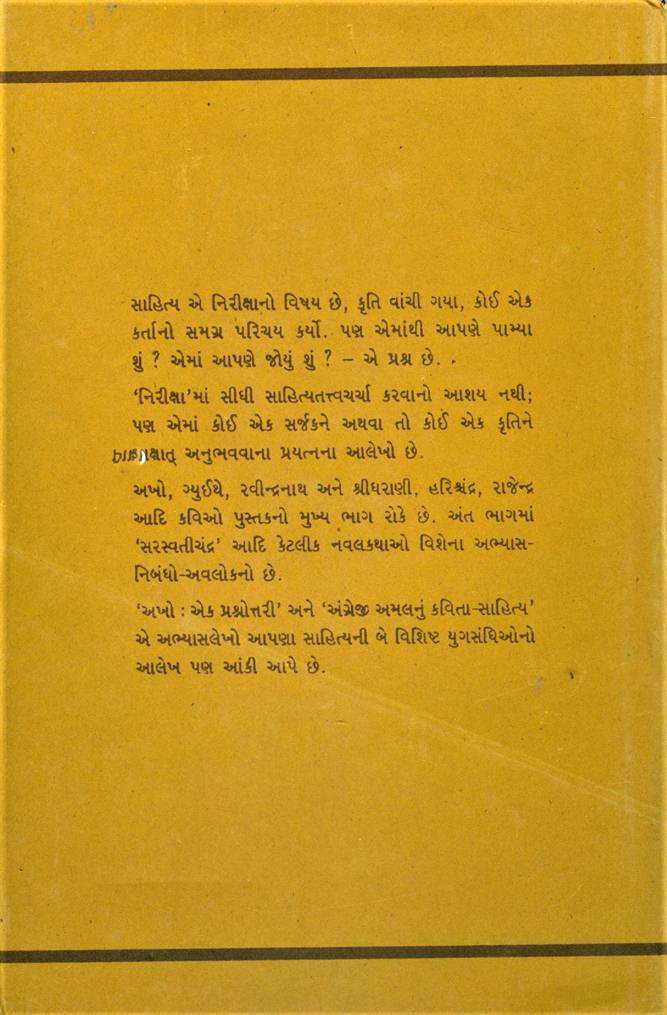 સાહિત્ય એ નિરીક્ષાનો વિષય છે, કૃતિ વાંચી ગયા, કોઈ એક
કર્તાનો સમગ્ર પરિચય કર્યો. પણ એમાંથી આપણે પામ્યા
શું ? એમાં આપણે જોયું શું ? – એ પ્રશ્ન છે.
‘નિરીક્ષા’માં સીધી સાહિત્યતત્ત્વચર્ચા કરવાનો આશય નથી;
પણ એમાં કોઈ એક સર્જકને અથવા તો કોઈ એક કૃતિને
અનુભવવાના પ્રયત્નના આલેખો છે.
અખો, ગ્યુઈથે, રવીન્દ્રનાથ અને શ્રીધરાણી, હરિશ્ચંદ્ર, રાજેન્દ્ર
આદિ કવિઓ પુસ્તકનો મુખ્ય ભાગ રોકે છે. અંત ભાગમાં
‘સરસ્વતીચંદ્ર’ આદિ કેટલીક નવલકથાઓ વિશેના અભ્યાસ-
નિબંધો-અવલોકનો છે.
‘અખો : એક પ્રશ્નોત્તરી’ અને ‘અંગ્રેજી અમલનું કવિતા-સાહિત્ય’
એ અભ્યાસલેખો આપણા સાહિત્યની બે વિશિષ્ટ યુગસંધિઓનો
આલેખ પણ આંકી આપે છે.